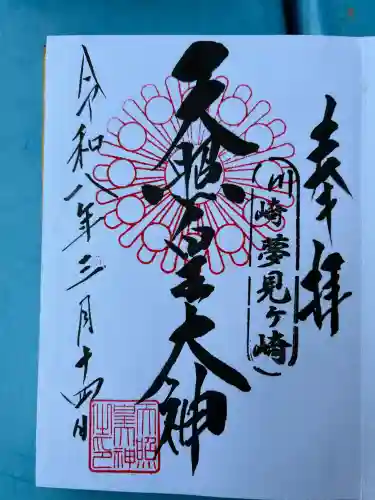 奉拝
(川崎夢見ヶ崎)
天照皇大神
令和八年三月十四日
天照
皇神
之印